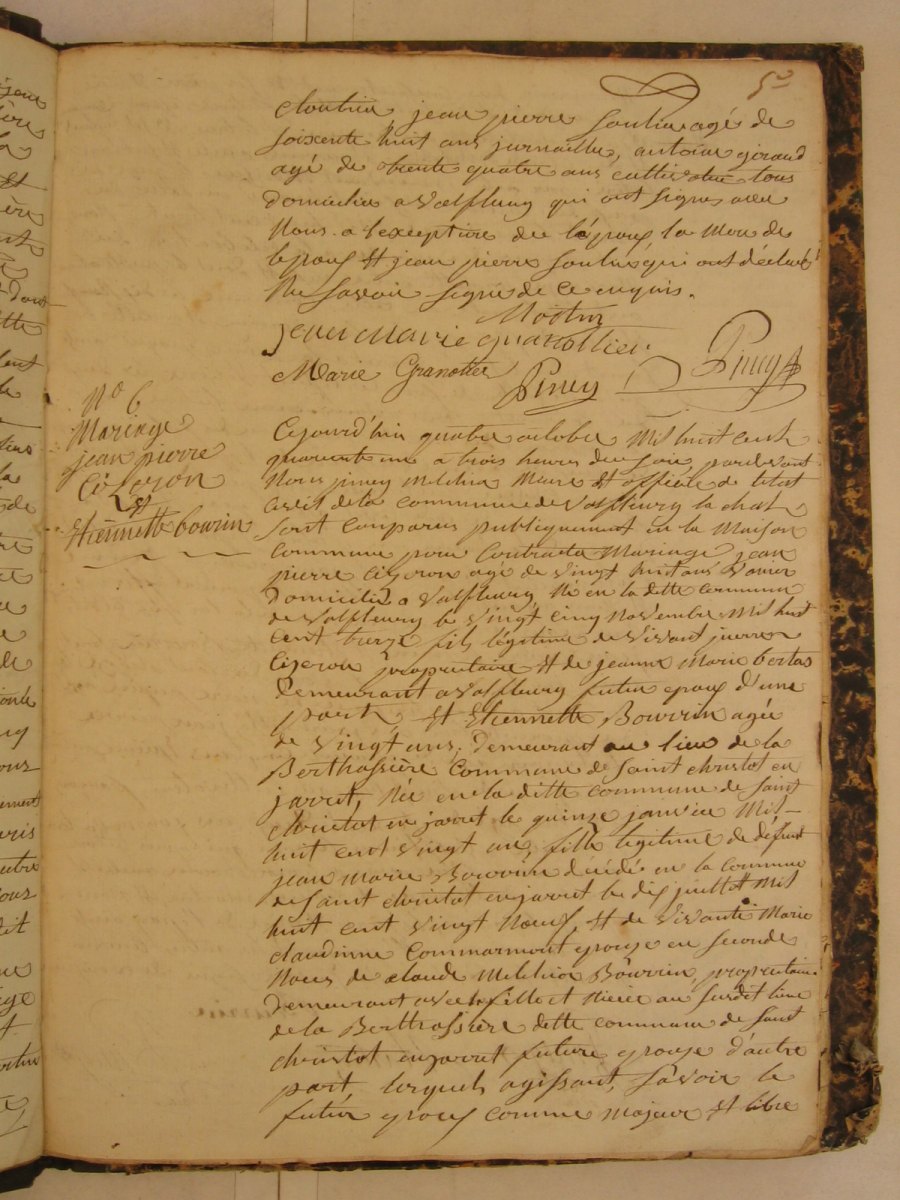 5
cloutier jean pierre Soulié agé de
soixente huit ans jurnaille, antoine giraud
agé de trente quatre ans cultivateur tous
domicilié a valfleury qui ont signes avec
Nous a lexcepture de l'époux la Mere de
lepoux et jean pierre Soulié qui ont déclaré
Ne savoir signe de ce enquis.
jean Marie granottier Mostin
Marie Granottier Piney Piney
No 6
Mariage
jean pierre
Cizeron
et
Etiennette bourrin
Cejourd'hui quatre octobre Mil huit cent
quarente un a trois heures du soir, pardevant
Nous piney Melchior Maire et officié de letat
civil de la commune de valfleury la chal
sont comparus publiquement en la Maison
commune pour contracter Mariage jean
pierre cizeron agé de vingt huit ans
Domicilié a valfleury Né en la ditte commune
de valfleury le vingt cinq Novembre Mil huit
cent treize fils légitime de vivant pierre
Cizeron propriétaire et de jeanne Marie bertas
Demeurant a valfleury futur epoux d'une
part, et Etiennette Bourrin agée
de vingt ans, demeurant au lieu de la
Berthassière commune de saint christot en
jarret, Née en la ditte commune de saint
christot en jarret le quinze janvier Mil
huit cent vingt un, fille légitime de défunt
jean marie Bourrin décédé en la commune
de saint christot en jarret le dix juillet Mil
huit cent vingt Neuf, et de vivante Marie
claudinne Commarmont epouse en seconde
Noces de claude Melchior Bourrin propriétaire
Demeurant avec fille et Niéce au susdit lieu
de la Berthassière ditte commune de saint
christot en jarret future epouse d'autre
part, lesquels agissant, sàvoir le
futur epoux comme majeur et libre